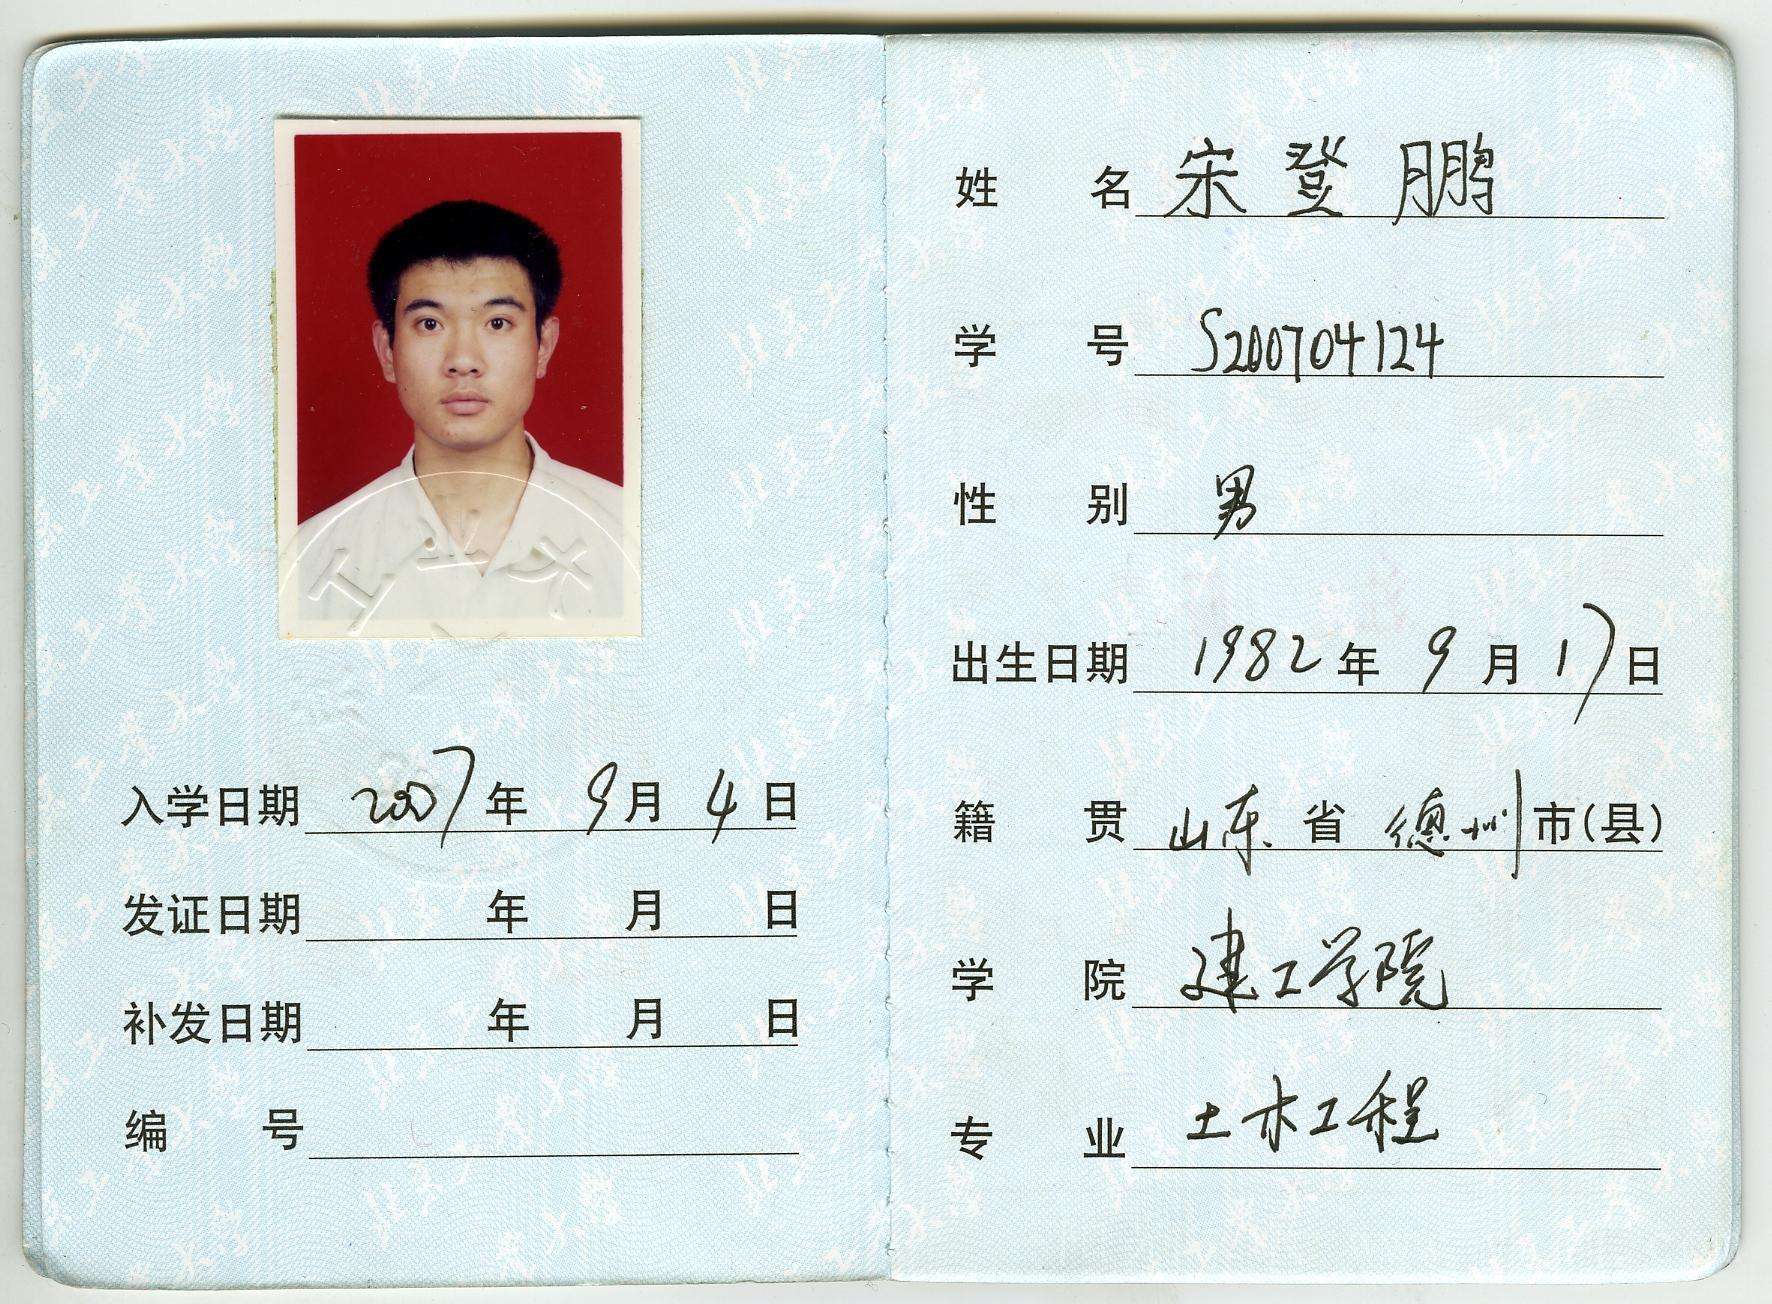 入学日期 2007 年 9 月 4 日
发证日期 年 月 日
补发日期 年 月 日
编 号
姓 名 宋登鹏
学 号 S200704124
性 别 男
出生日期 1982 年 9 月 17 日
籍 贯 山东 省 德州 市(县)
学 院 建工学院
专 业 土木工程
工业大